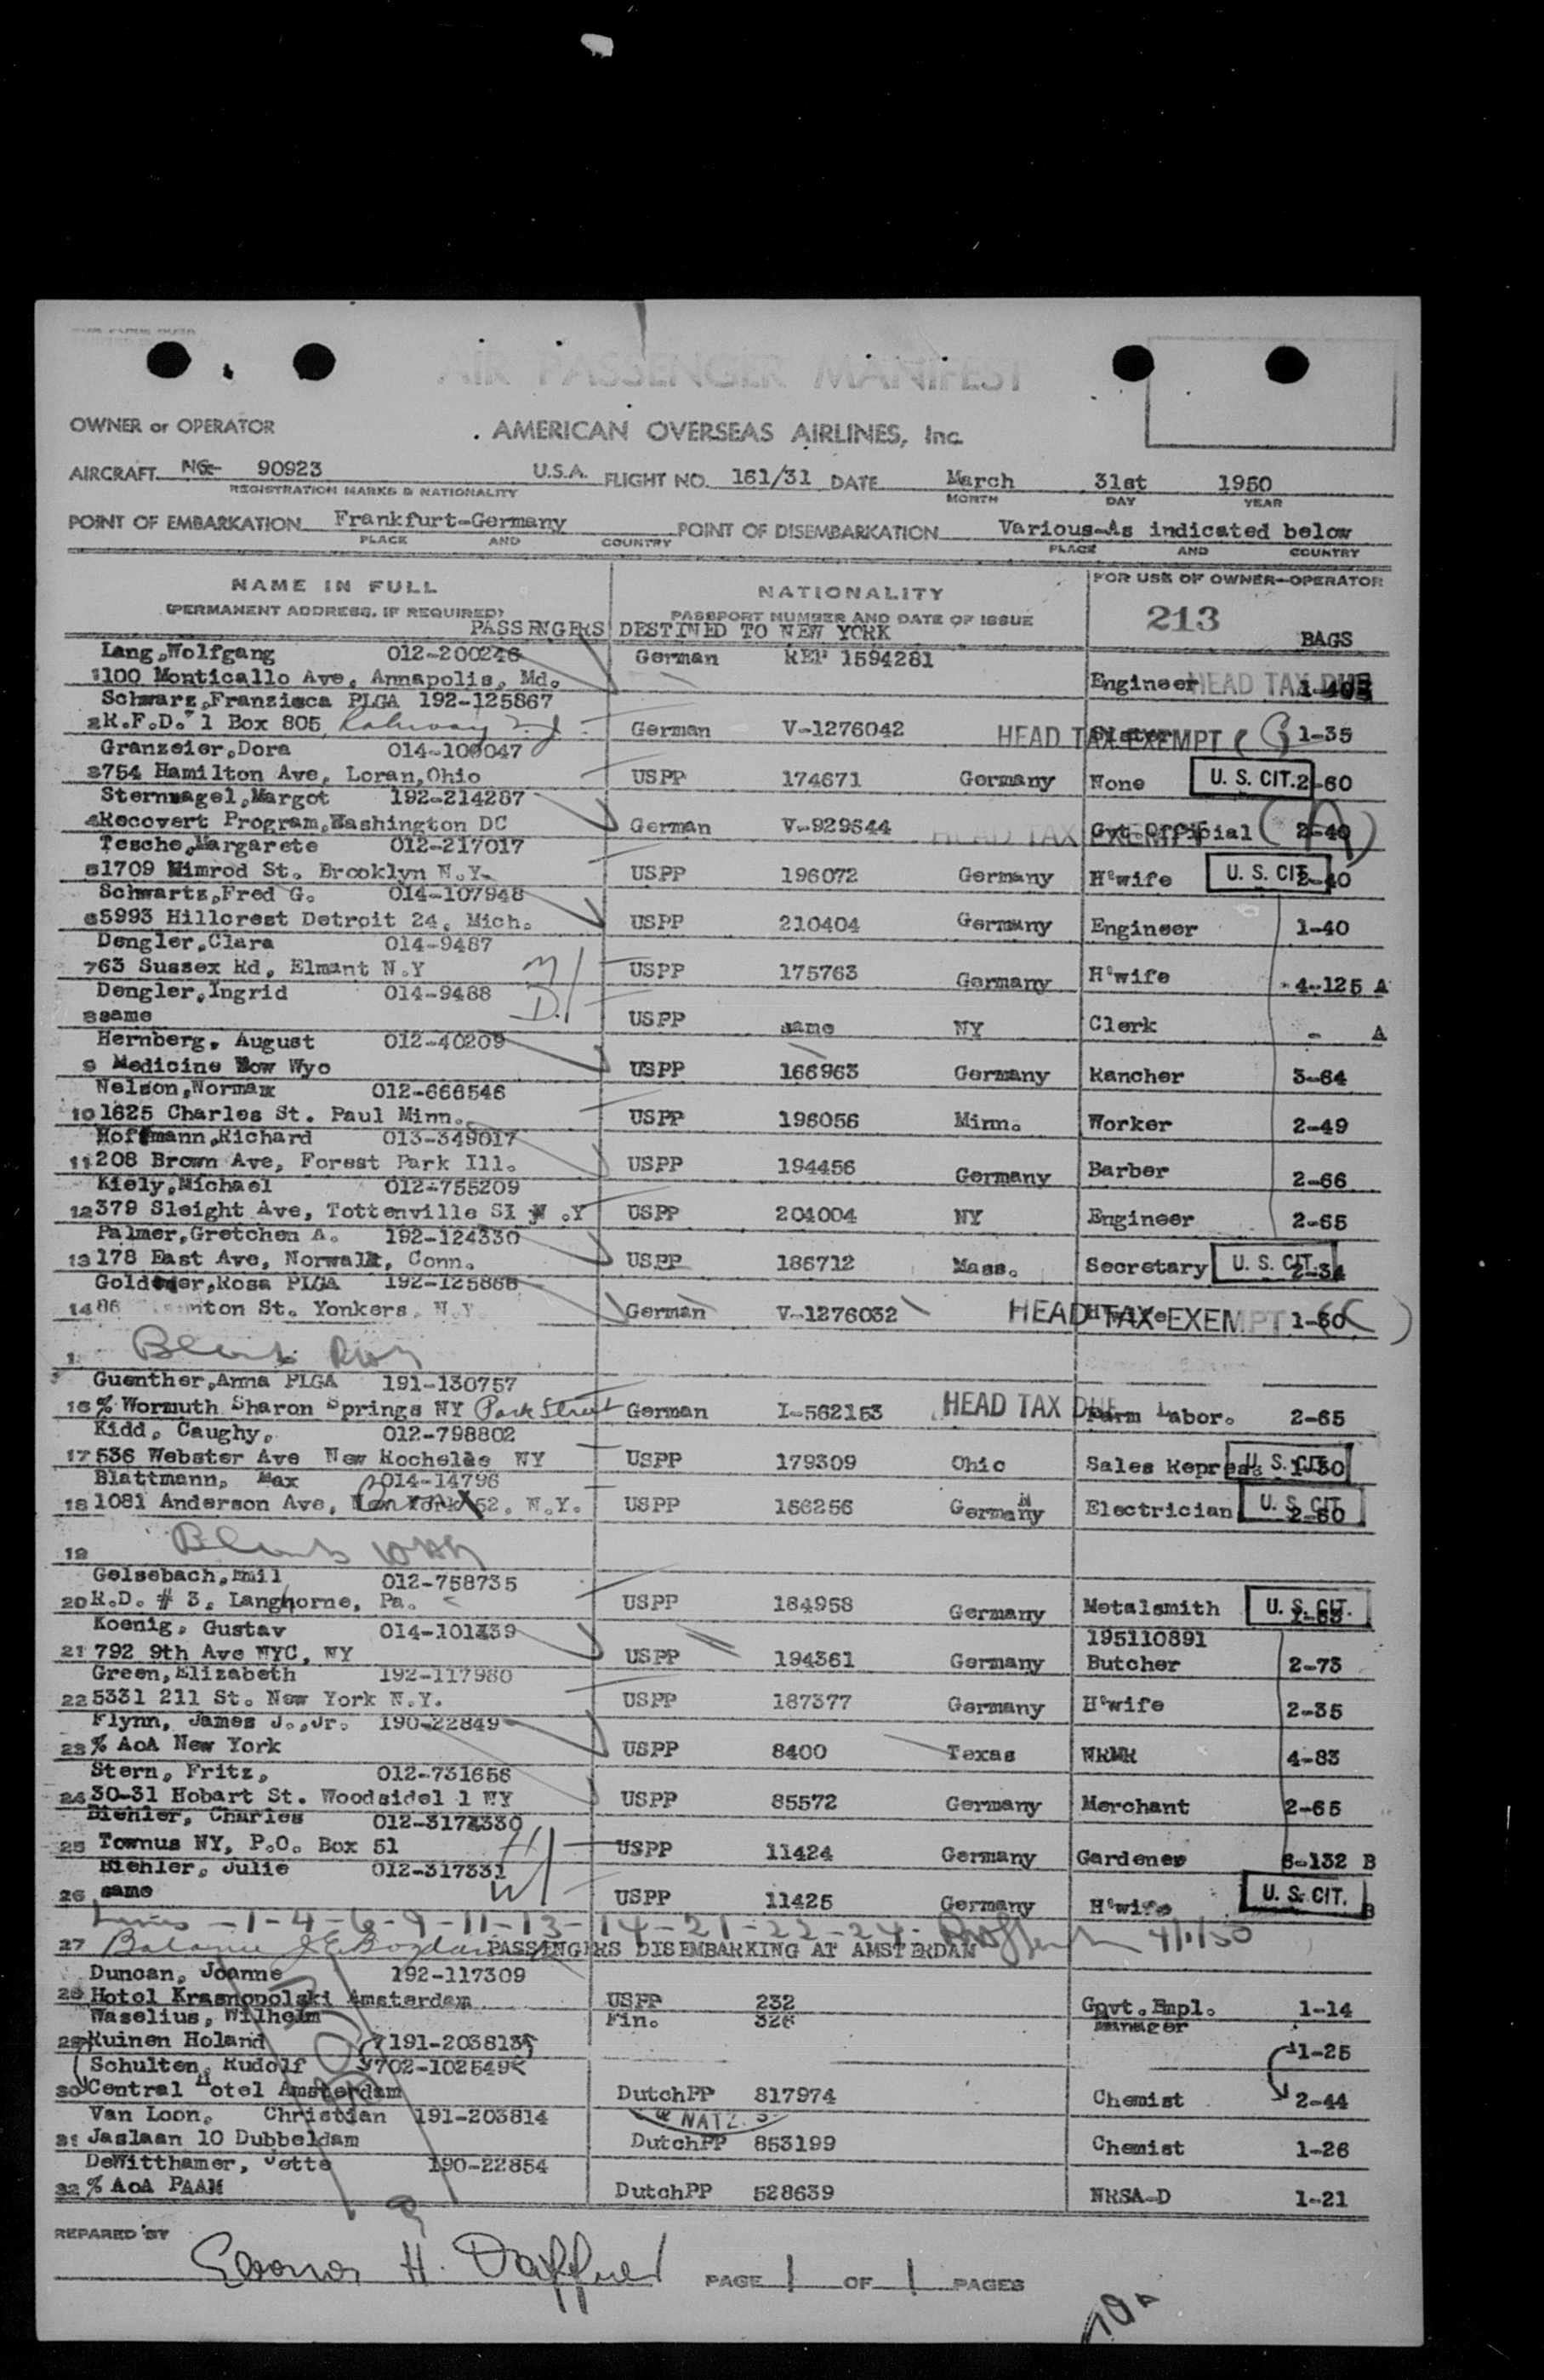 AIR PASSENGER MANIFEST
OWNER or OPERATOR AMERICAN OVERSEAS AIRLINES, Inc.
AIRCRAFT NC- 90923 U.S.A. FLIGHT NO. 161/31 DATE March 31st 1950
REGISTRATION MARKS & NATIONALITY MONTH DAY YEAR
POINT OF EMBARKATION Frankfurt-Germany POINT OF DISEMBARKATION Various-As indicated below
PLACE AND COUNTRY PLACE AND COUNTRY
NAME IN FULL NATIONALITY FOR USE OF OWNER-OPERATOR
(PERMANENT ADDRESS, IF REQUIRED) PASSPORT NUMBER AND DATE OF ISSUE 213
PASSENGERS DESTINED TO NEW YORK BAGS
Lang,Wolfgang 012-200246 German REP 1594281
1 100 Monticallo Ave, Annapolis, Md. Engineer HEAD TAX DUE
Schwarz,Franzisca PLGA 192-125867
2 R.F.D. 1 Box 805, Rahway N.J. German V-1276042 HEAD TAX EXEMPT 1-35
Granzeier,Dora 014-100047
3 754 Hamilton Ave, Loran,Ohio USPP 174671 Germany None U. S. CIT. 2-60
Sternnagel,Margot 192-214287
4 Recovert Program,Washington DC German V-929544 HEAD TAX EXEMPT Gvt.Official 2-40
Tesche,Margarete 012-217017
5 1709 Nimrod St. Brooklyn N.Y. USPP 196072 Germany H'wife U. S. CIT. 2-40
Schwartz,Fred G. 014-107948
6 5993 Hillcrest Detroit 24, Mich. USPP 210404 Germany Engineer 1-40
Dengler,Clara 014-9487
7 63 Sussex Rd, Elmont N.Y USPP 175763 Germany H'wife 4-125 A
Dengler,Ingrid 014-9488
8 same USPP same NY Clerk - A
Hernberg, August 012-40209
9 Medicine Bow Wyo USPP 166963 Germany Rancher 3-64
Nelson,Norman 012-666546
10 1625 Charles St. Paul Minn. USPP 196056 Minn. Worker 2-49
Hoffmann,Richard 013-349017
11 208 Brown Ave, Forest Park Ill. USPP 194456 Germany Barber 2-66
Kiely,Michael 012-755209
12 379 Sleight Ave, Tottenville SI N.Y USPP 204004 NY Engineer 2-65
Palmer,Gretchen A. 192-124330
13 178 East Ave, Norwalk, Conn. USPP 186712 Mass. Secretary U. S. CIT. 2-34
Rosa PLGA 192-125866
14 86 St. Yonkers, N.Y. German V-1276032 HEAD TAX EXEMPT 1-60
Blank
Guenther,Anna PLGA 191-130757
16 % Wormuth Sharon Springs NY Park Street German I-562153 HEAD TAX DUE Farm Labor. 2-65
Kidd, Caughy, 012-798802
17 536 Webster Ave New Rochelle NY USPP 179309 Ohio Sales Repres U. S. CIT. 1-50
Blattmann, Max 014-14796
18 1081 Anderson Ave, New York 52, N.Y. Bronx USPP 166256 Germany Electrician U. S. CIT. 2-60
19 Blank
Gelsebach,Emil 012-758735
20 R.D. # 3, Langhorne, Pa. USPP 184958 Germany Metalsmith U. S. CIT.
Koenig, Gustav 014-101439 195110891
21 792 9th Ave NYC, NY USPP 194361 Germany Butcher 2-73
Green,Elizabeth 192-117980
22 5331 211 St. New York N.Y. USPP 187377 Germany H'wife 2-35
Flynn, James J.,Jr. 190-22849
23 % AOA New York USPP 8400 Texas NRMR 4-83
Stern, Fritz, 012-731656
24 30-31 Hobart St. Woodsidel 1 NY USPP 85572 Germany Merchant 2-65
Biehler, Charles 012-317330
25 Townus NY, P.O. Box 51 USPP 11424 Germany Gardener 6-132 B
Biehler, Julie 012-317331
26 same USPP 11425 Germany H'wife U. S. CIT. B
Lines -1-4-6-9-11-13-14-21-22-24- 4/1/50
27 Balance PASSENGERS DISEMBARKING AT AMSTERDAM
Duncan, Joanne 192-117309
28 Hotel Krasnopolski Amsterdam USPP 232 Govt.Empl. 1-14
Waselius, Wilhelm Fin. 326 Manager
29 Kuinen Holand 191-203813 1-25
Schulten, Rudolf 702-102549
30 Central Hotel Amsterdam DutchPP 817974 Chemist 2-44
Van Loon, Christian 191-203814
31 Jaslaan 10 Dubbeldam DutchPP 853199 Chemist 1-26
DeWitthamer, Jette 190-22854
32 % AOA PAAM DutchPP 528639 NRSA-D 1-21
REPARED BY
Eleonor H. Daffner PAGE 1 OF 1 PAGES